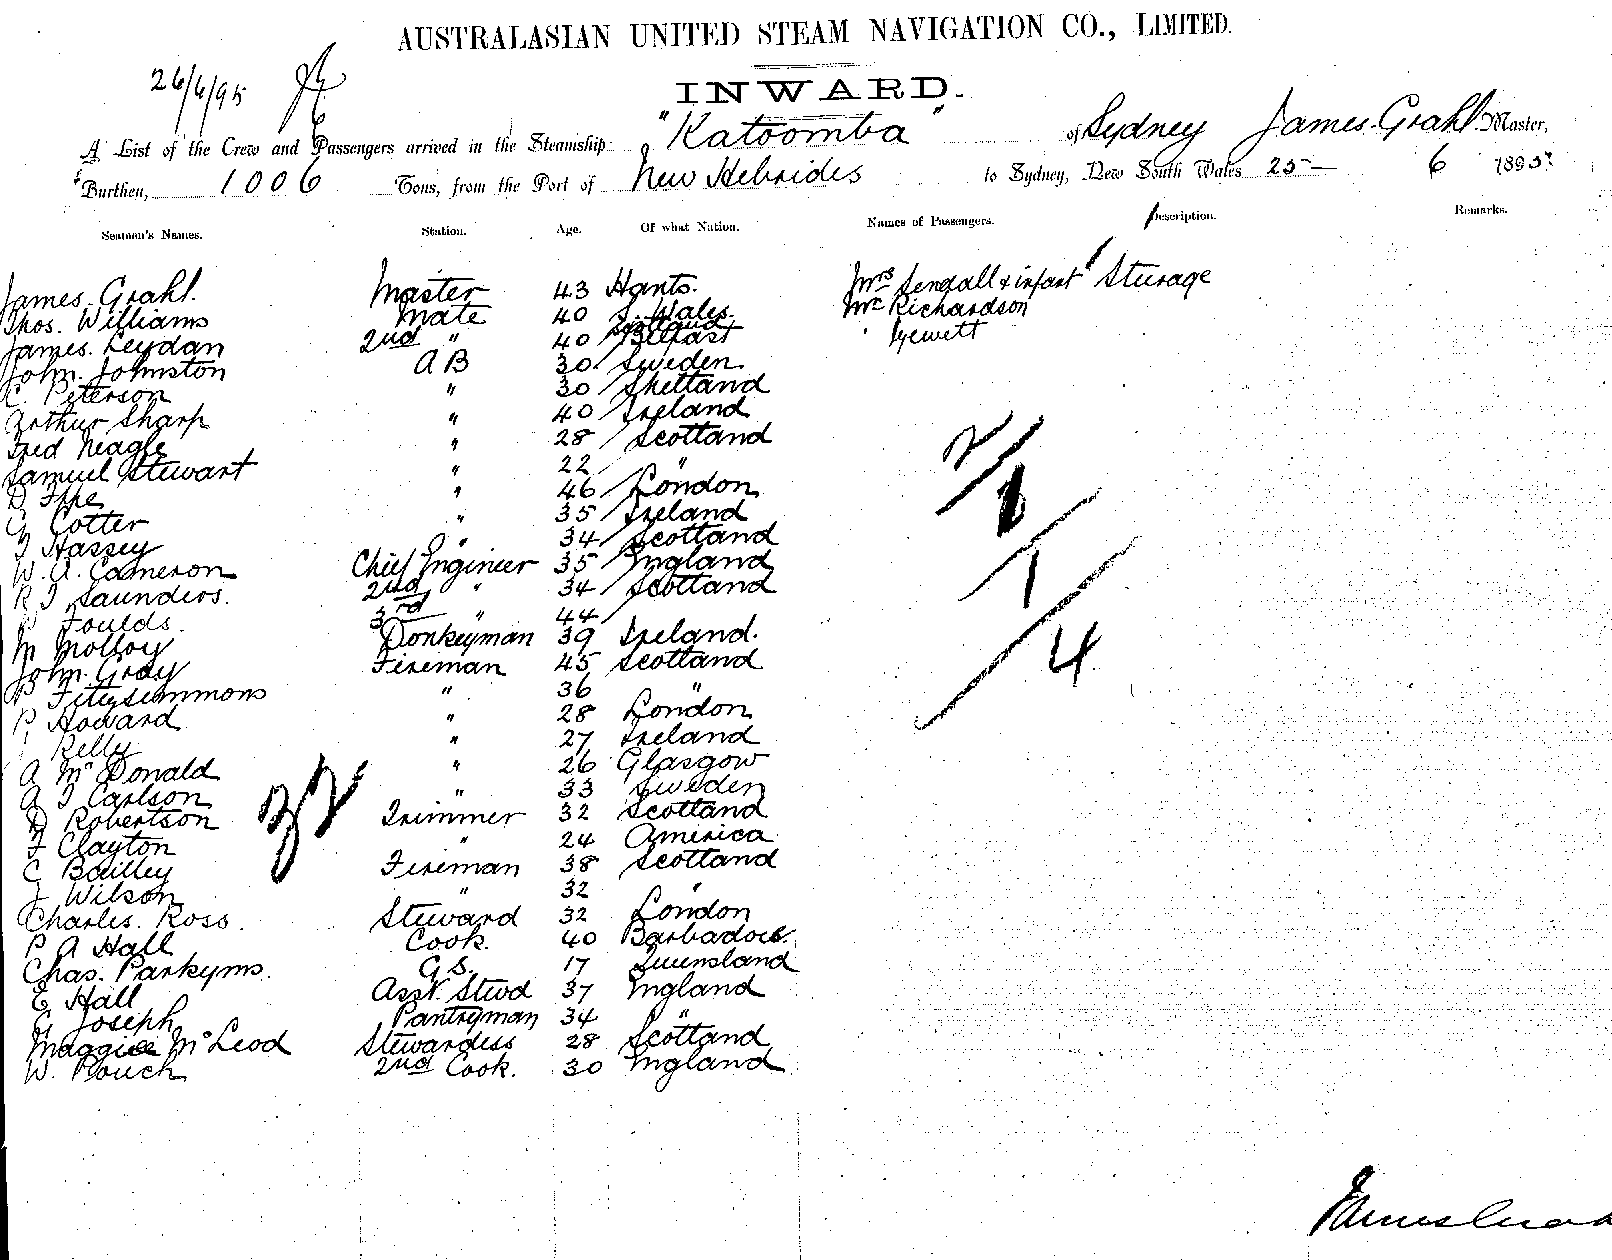 AUSTRALASIAN UNITED STEAM NAVIGATION CO., LIMITED.
26/6/95
INWARD.
A List of the Crew and Passengers arrived in the Steamship "Katoomba" of Sydney James Grahl Master,
Burthen, 1006 Tons, from the Port of New Hebrides to Sydney, New South Wales 25 6 1895
Seamen's Names. Station. Age. Of what Nation. Names of Passengers. Description. Remarks.
James Grahl. Master 43 Hants. Mrs Sendall & infant Steerage
Thos. Williams Mate 40 S. Wales. Mr Richardson
James. Leydan 2nd " 40 Belfast Scotland " Hewett
John. Johnston A B 30 Sweden
C Peterson " 30 Shetland
Arthur Sharp " 40 Ireland
Fred Neagle " 28 Scotland
Samuel Stewart " 22 "
D Fyfe " 46 London
G Cotter " 35 Ireland
J Hassey " 34 Scotland
W. A. Cameron Chief Engineer 35 England
R J Saunders. 2nd " 34 Scotland
P Foulds. 3rd " 44
M Molloy Donkeyman 39 Ireland.
John. Gray Fireman 45 Scotland
P Fitzsimmons " 36 "
P. Howard " 28 London
Kelly " 27 Ireland
A McDonald " 26 Glasgow
A J Carlson " 33 Sweden
D Robertson Trimmer 32 Scotland
F Clayton " 24 America
C Bailley Fireman 38 Scotland
J Wilson " 32 "
Charles. Ross. Steward 32 London
P A Hall Cook. 40 Barbadoes.
Chas. Parkyms. G.S. 17 Queensland
E Hall Asst. Stewd 37 England
G Joseph Pantryman 34 "
Maggie McLeod Stewardess 28 Scotland
W. Pouch 2nd Cook. 30 England
2/1
1
/4
32